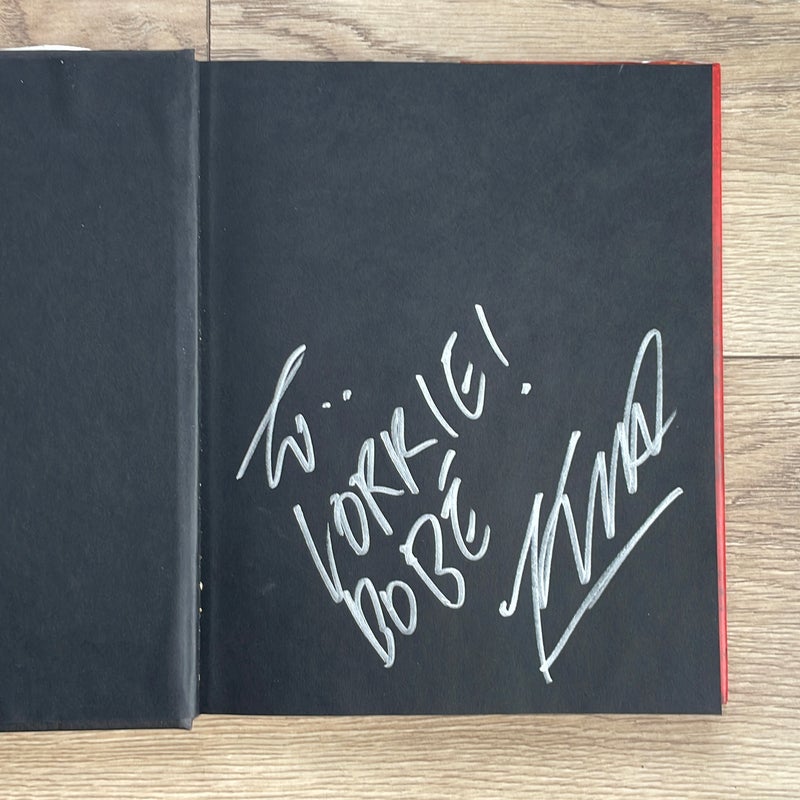 To..
LORRIE!
BOBÉ